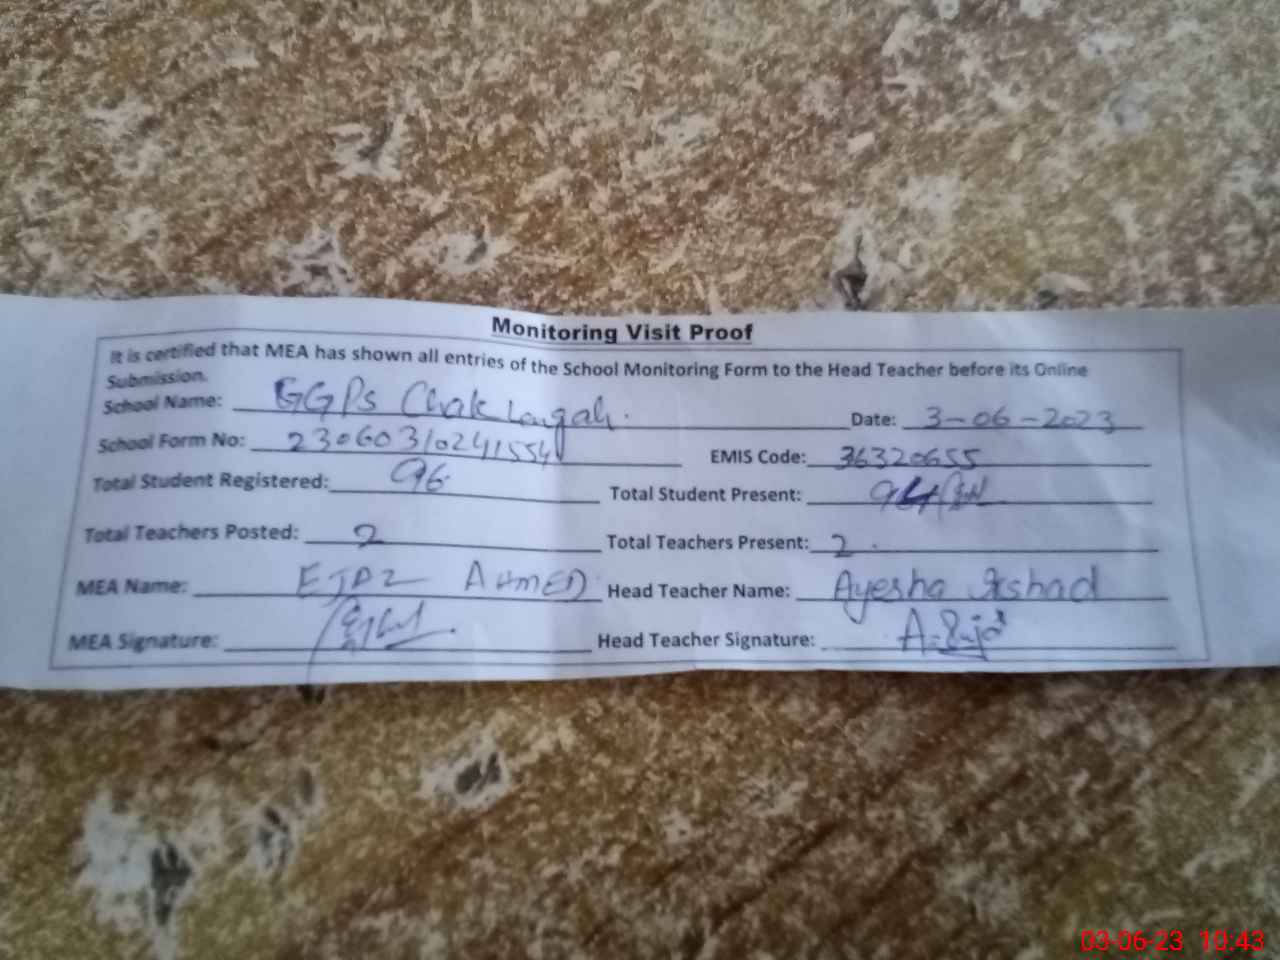 Monitoring Visit Proof
It is certified that MEA has shown all entries of the School Monitoring Form to the Head Teacher before its Online
Submission.
School Name: GGPS Chak Langah. Date: 3-06-2023
School Form No: 23060310241554 EMIS Code: 36320655
Total Student Registered: 96 Total Student Present: 94
Total Teachers Posted: 2 Total Teachers Present: 2.
MEA Name: EJAZ AHMED Head Teacher Name: Ayesha Irshad
MEA Signature: Head Teacher Signature:
03-06-23 10:43